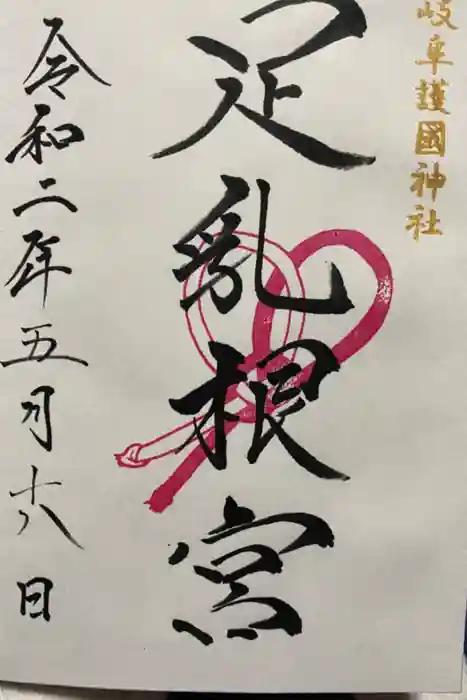 岐阜護國神社
足乳根宮
令和二年五月十八日